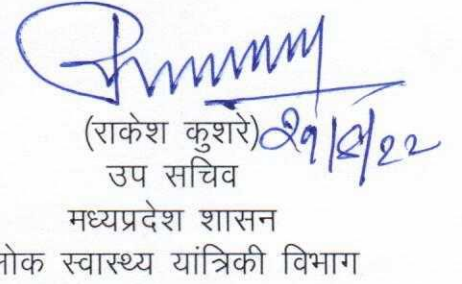 (राकेश कुशरे)
उप सचिव
मध्यप्रदेश शासन
लोक स्वास्थ्य यांत्रिकी विभाग